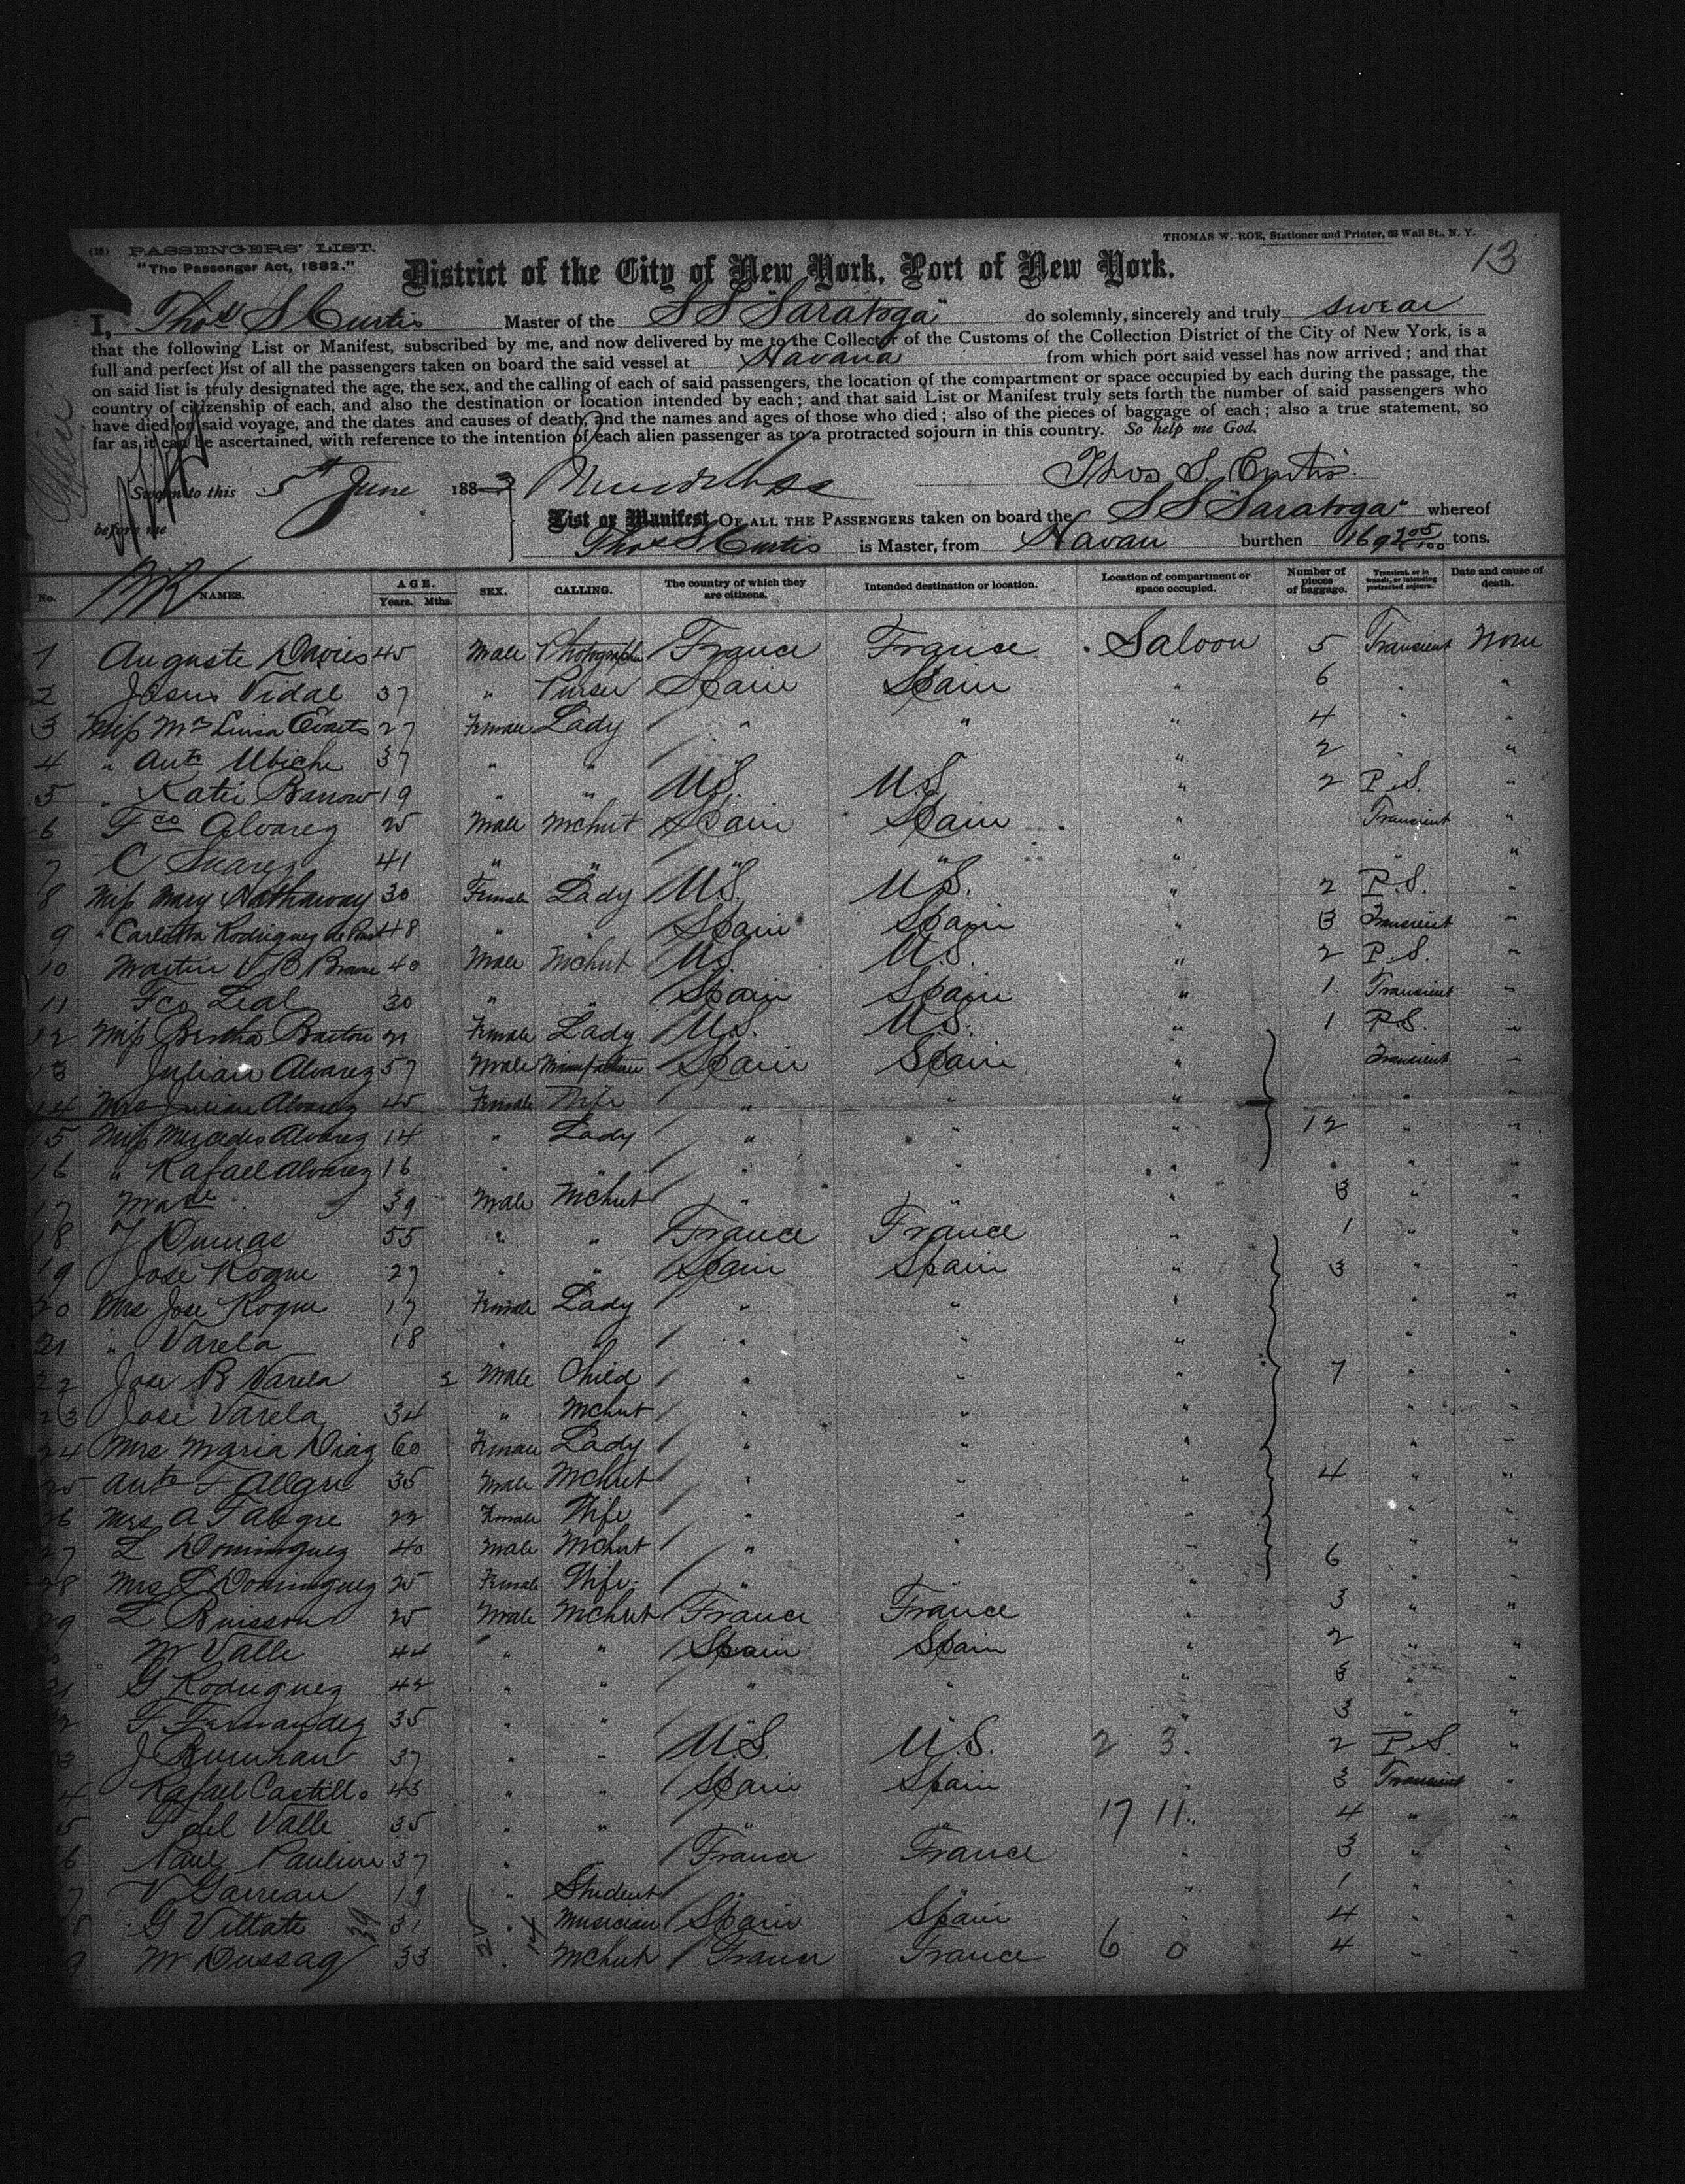 (18) PASSENGERS' LIST.
THOMAS W. ROE, Stationer and Printer, 63 Wall St., N. Y.
"The Passenger Act, 1882."
District of the City of New York, Port of New York.
13
I, Thos S Curtis Master of the SS "Saratoga" do solemnly, sincerely and truly swear
that the following List or Manifest, subscribed by me, and now delivered by me to the Collector of the Customs of the Collection District of the City of New York, is a
full and perfect list of all the passengers taken on board the said vessel at Havana from which port said vessel has now arrived; and that
on said list is truly designated the age, the sex, and the calling of each of said passengers, the location of the compartment or space occupied by each during the passage, the
country of citizenship of each, and also the destination or location intended by each; and that said List or Manifest truly sets forth the number of said passengers who
have died on said voyage, and the dates and causes of death, and the names and ages of those who died; also of the pieces of baggage of each; also a true statement, so
far as it can be ascertained, with reference to the intention of each alien passenger as to a protracted sojourn in this country. So help me God.
Sworn to this 5th June 1883
Thos S. Curtis
before me
List or Manifest OF ALL THE PASSENGERS taken on board the SS "Saratoga" whereof
Thos S Curtis is Master, from Havan burthen 1692 05/100 tons.
No. NAMES. AGE. Years. Mths. SEX. CALLING. The country of which they are citizens. Intended destination or location. Location of compartment or space occupied. Number of pieces of baggage. Transient, or in transit, or intending protracted sojourn. Date and cause of death.
1 Auguste Davies 45 Male Photograph France France Saloon 5 Transient None
2 Jesus Vidal 37 " Purser Spain Spain " 6 " "
3 Miss Ma Luisa Evarts 27 Female Lady " " " 4 " "
4 " Anto Ubiche 37 " " " " " 2 " "
5 " Katie Barrow 19 " " U.S. U.S. " 2 P.S. "
6 Fco Alvarez 25 Male Mchnt Spain Spain " Transient "
7 C Suarez 41 " " " " " " "
8 Miss Mary Hathaway 30 Female Lady U.S. U.S. " 2 P.S. "
9 " Carlotta Rodriguez de 48 " " Spain Spain " 3 Transient "
10 Martin V B Brown 40 Male Mchnt U.S. U.S. " 2 P.S. "
11 Fco Leal 30 " " Spain Spain " 1 Transient "
12 Miss Bertha Barton 21 Female Lady U.S. U.S. " 1 P.S. "
13 Julian Alvarez 57 Male Manufacturer Spain Spain " Transient "
14 Mrs Julian Alvarez 45 Female Wife " " " " "
15 Miss Mercedes Alvarez 14 " Lady " " " 12 " "
16 " Rafael Alvarez 16 " " " " " " "
17 39 Male Mchnt " " " 3 " "
18 J Dumas 55 " " France France " 1 " "
19 Jose Roque 27 " " Spain Spain " 3 " "
20 Mrs Jose Roque 17 Female Lady " " " " "
21 " Varela 18 " " " " " " "
22 Jose B Varela 2 Male Child " " " 7 " "
23 Jose Varela 34 " Mchnt " " " " "
24 Mrs Maria Diaz 60 Female Lady " " " " "
25 Anto F Allgre 35 Male Mchnt " " " 4 " "
26 Mrs A F Allgre 22 Female Wife " " " "
27 L Dominguez 40 Male Mchnt " " 6 " "
28 Mrs L Dominguez 25 Female Wife " " " " "
29 L Buisson 25 Male Mchnt France France " 3 " "
M Valle 44 " " Spain Spain " 2 " "
31 G Rodriguez 42 " " " " " 3 " "
2 F Fernandez 35 " " " " " 3 " "
3 J 37 " " U.S. U.S. 2 3 2 P.S. "
4 Rafael Castillo 43 " " Spain Spain " 3 Transient "
5 F del Valle 35 " " " " 17 11 4 " "
6 Paul Pauline 37 " " France France " 3 " "
7 V Garreau 19 " Student " " " 1 " "
8 G Villate 31 " Musician Spain Spain " 4 " "
9 M Dussaq 33 " Mchnt France France 6 0 4 " "